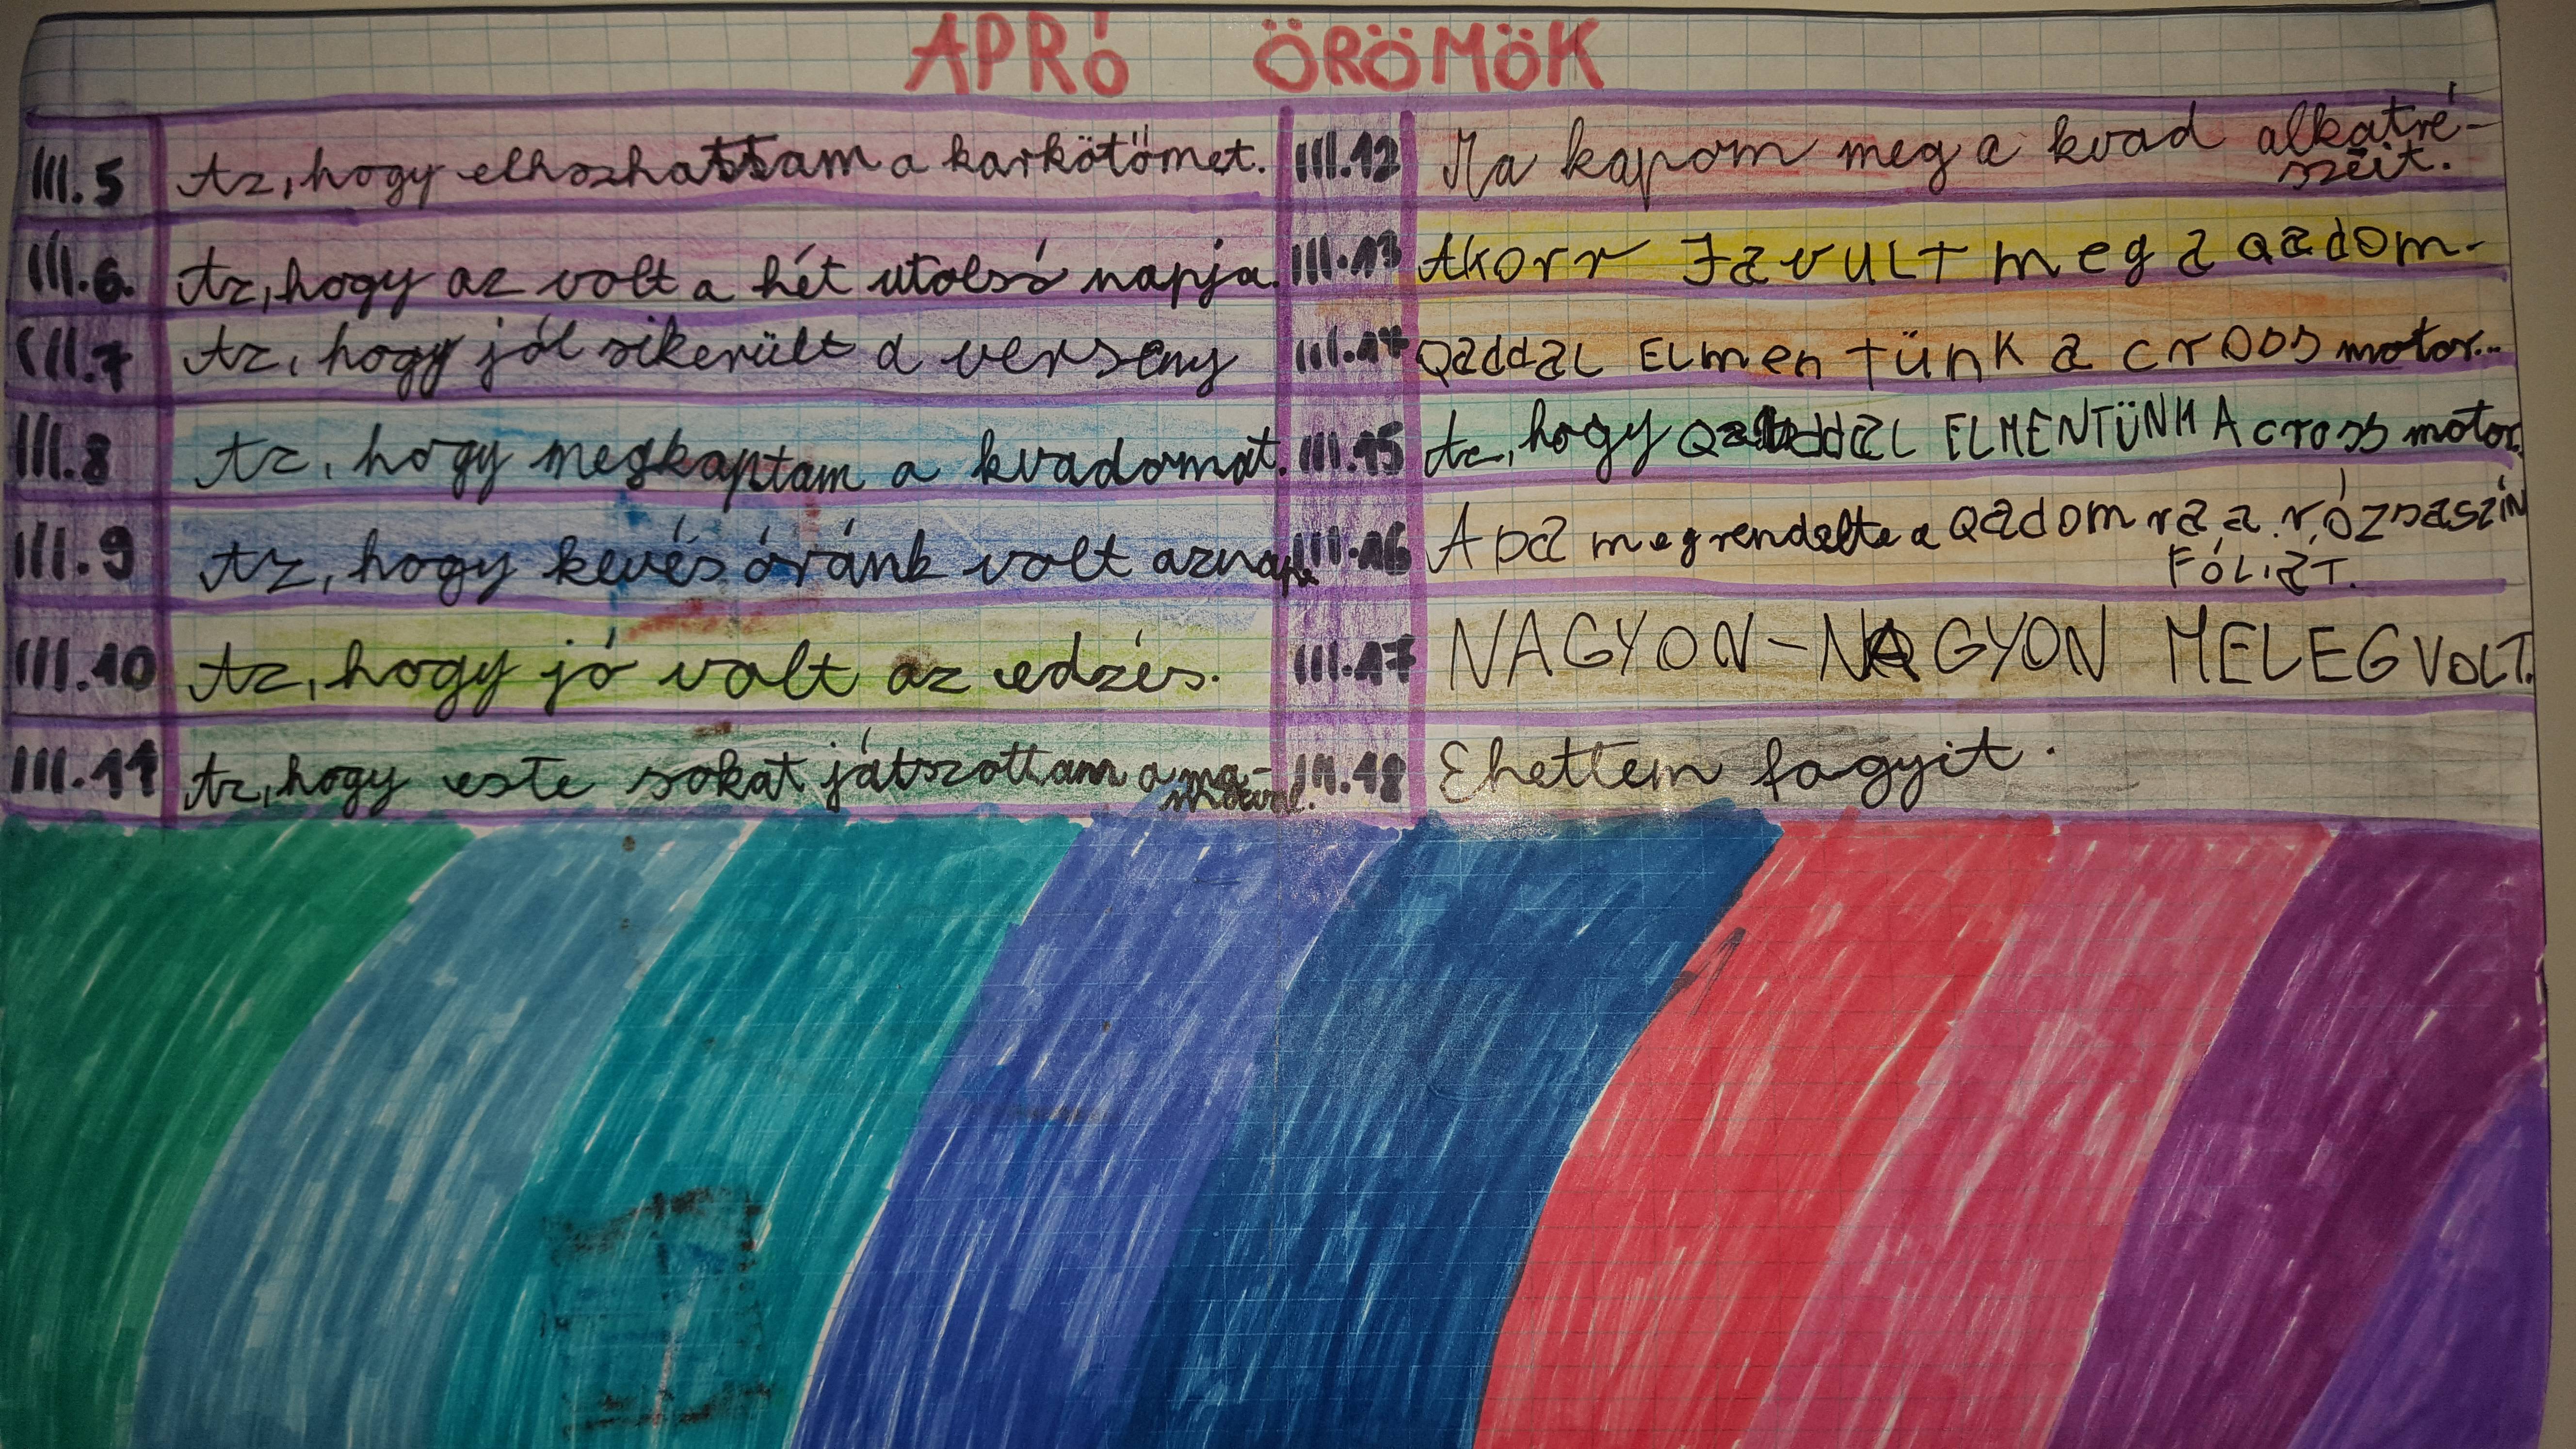 APRÓ ÖRÖMÖK
III.5 Az, hogy elhozhattam a karkötőmet.
III.6. Az, hogy az volt a hét utolsó napja.
III.7 Az, hogy jól sikerült a verseny
III.8 Az, hogy megkaptam a kvadomat.
III.9 Az, hogy kevés óránk volt aznap.
III.10 Az, hogy jó volt az edzés.
III.11 Az, hogy este sokat játszottam a ma-
III.12 Ma kapom meg a kvad alkatré-
szeit.
III.13 Akorr Javult meg a Qadom.
III.14 Qaddal ELmentünk a cross motor...
III.15 Az, hogy Qaddal ELMENTÜNK A cross motor.
III.16 Apa megrendelte a Qadomra a rózsaszín
FÓLIÁT.
III.17 NAGYON-NAGYON MELEG VOLT.
III.18 Ehettem fagyit.